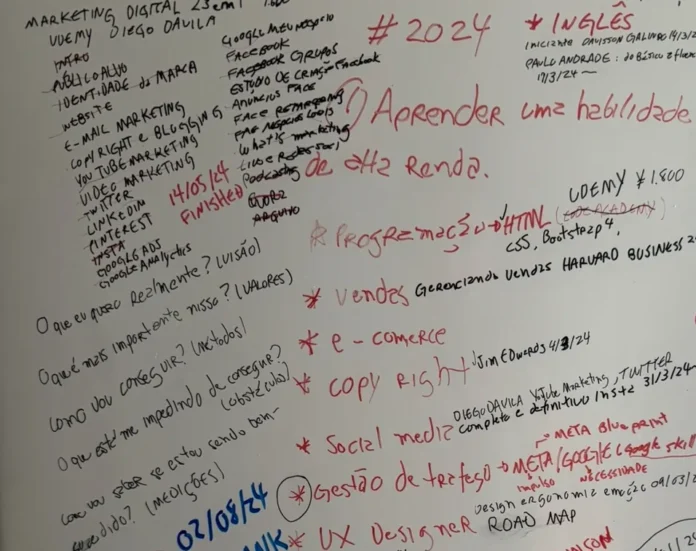 MARKETING DIGITAL 23 em 1
UDEMY Diego DAVILA
INTRO
PÚBLICO ALVO
IDENTIDADE da MARCA
WEBSITE
E-MAIL MARKETING
COPYRIGHT e BLOGGING
YOUTUBE MARKETING
VIDEO MARKETING
TWITTER
LINKEDIN
PINTEREST
INSTA
GOOGLE ADS
Google Analytics
GOOGLE MEU NEGÓCIO
FACEBOOK
FACEBOOK GRUPOS
ESTÚDIO DE CRIAÇÃO Facebook
Anúncios FACE
FACE
What's marketing
Podcasting
QUORA
ARQUIVO
14/05/24
FINISHED
O que eu quero realmente? (VISÃO)
O que é mais importante nisso? (VALORES)
Como vou conseguir? (Métodos)
O que está me impedindo de conseguir?
(obstáculo)
Como vou saber se estou sendo bem-
sucedido? (MEDIÇÕES)
02/08/24
# 2024
* INGLÊS
iniciante DAVISSON
PAULO ANDRADE: do Básico a fluen
17/3/24 ~
1) Aprender uma habilidade
de alta Renda.
UDEMY ¥ 1.800
* PROGRAMAÇÃO → HTML (CODE ACADEMY)
CSS, Bootstrap 4,
* Vendas Gerenciando vendas HARVARD BUSINESS
* e-comerce
* COPY Right Jim EDWARDS 4/3/24
DIEGO DAVILA YouTube Marketing, TWITTER
* Social media completo e definitivo insta 31/3/24
META Blueprint
* Gestão de trafego → META/GOOGLE (Google skill
impulso NECESSIDADE
Design ergonomia emoção 09/03/2
* UX Designer ROAD MAP